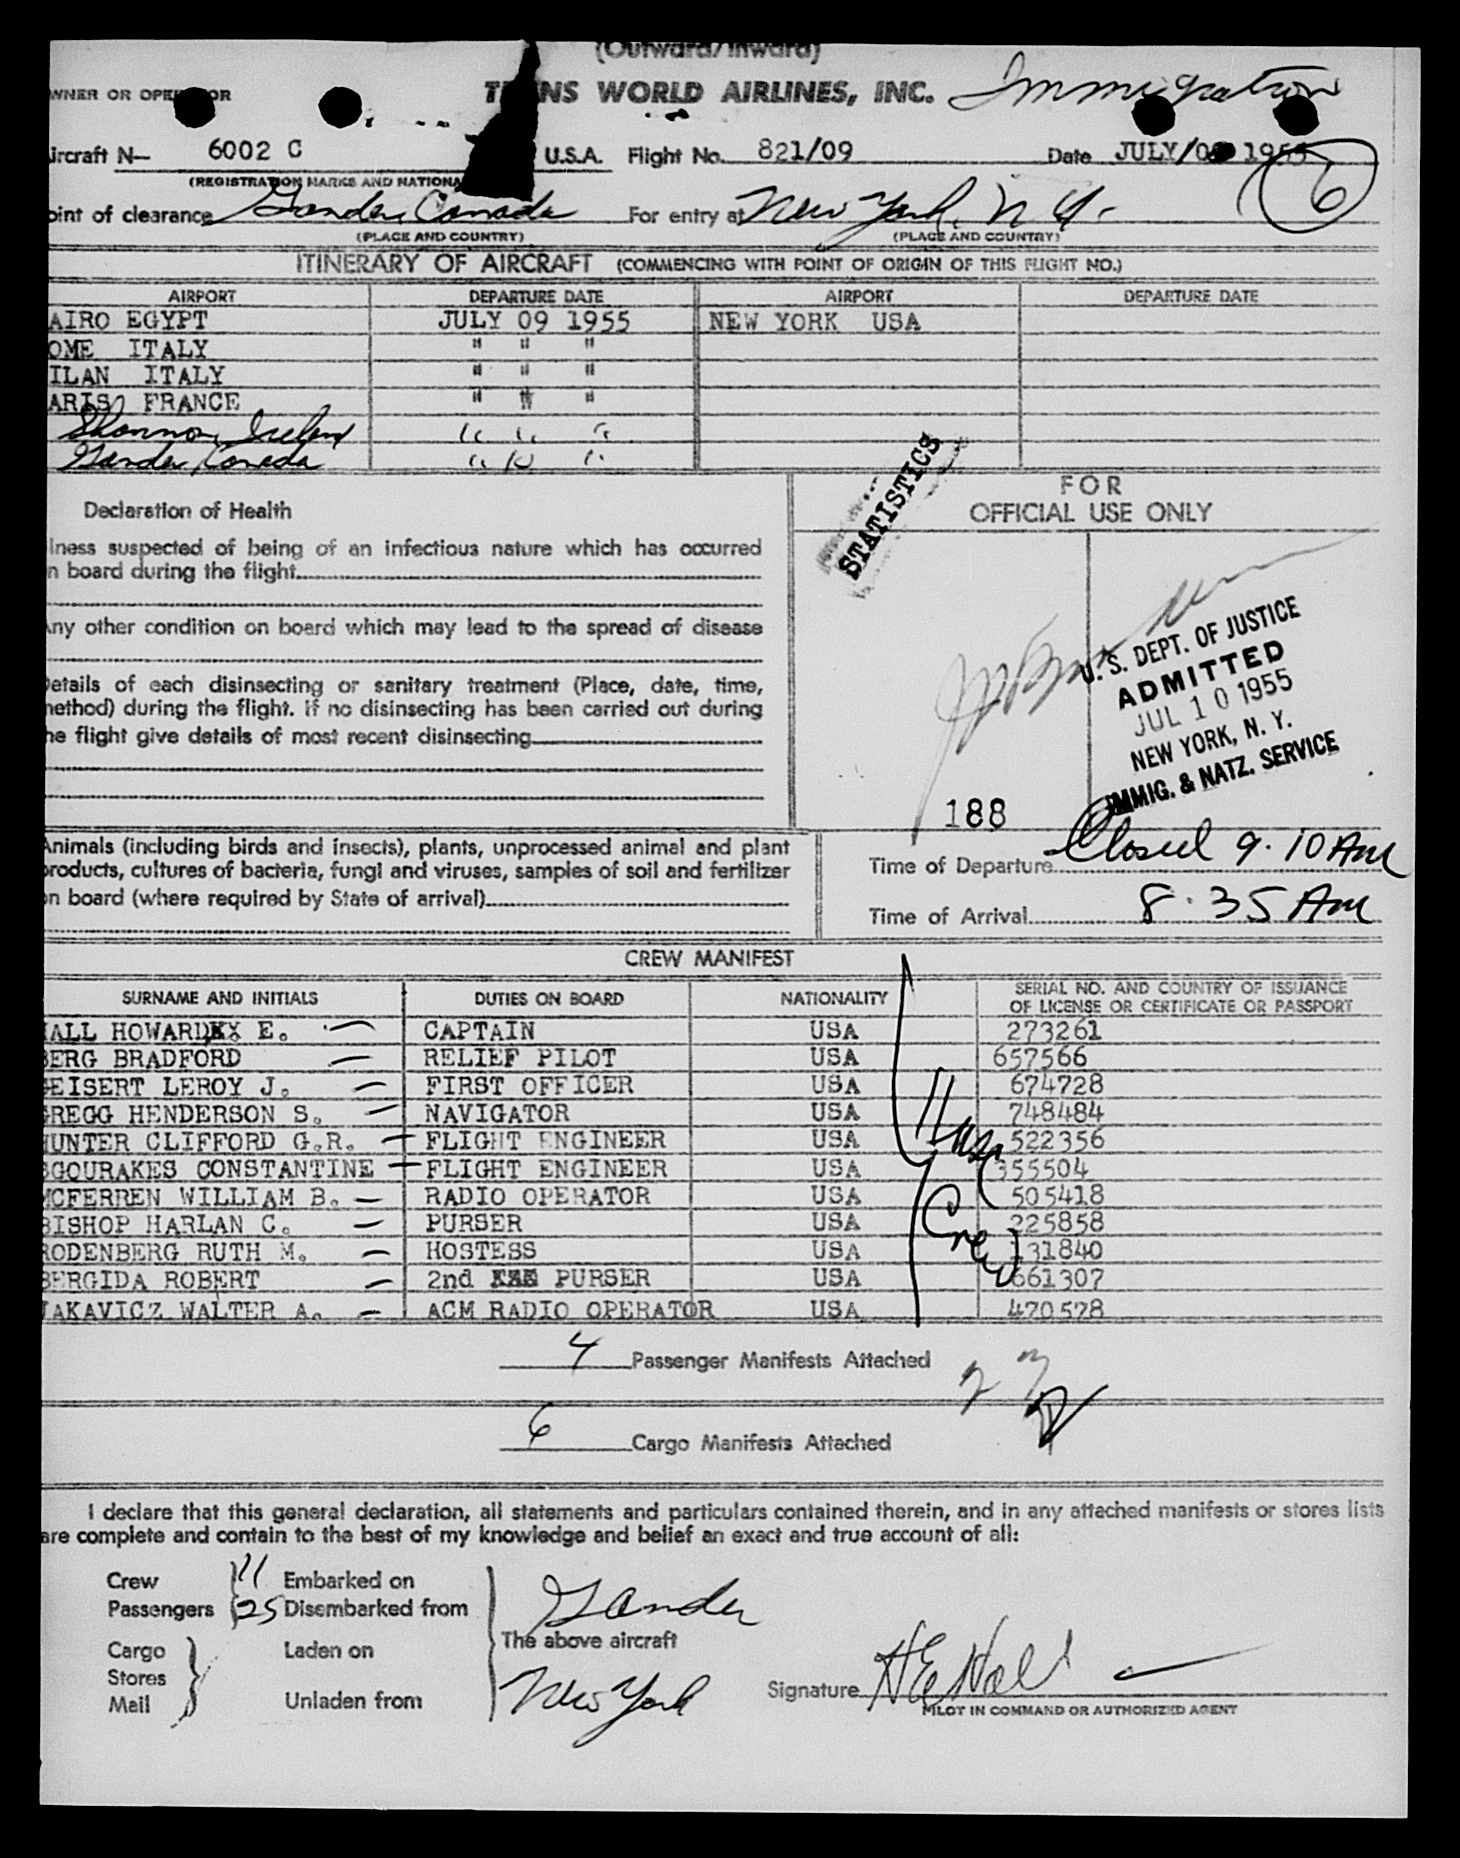 (Outward/Inward)
WNER OR OPE OR TRANS WORLD AIRLINES, INC. Immigration
ircraft N— 6002 C U.S.A. Flight No. 821/09 Date JULY/09 1955
(REGISTRATION MARKS AND NATIONA
oint of clearance Gander, Canada For entry at New York, N Y. 6
(PLACE AND COUNTRY) (PLACE AND COUNTRY)
ITINERARY OF AIRCRAFT (COMMENCING WITH POINT OF ORIGIN OF THIS FLIGHT NO.)
AIRPORT DEPARTURE DATE AIRPORT DEPARTURE DATE
AIRO EGYPT JULY 09 1955 NEW YORK USA
OME ITALY " " "
ILAN ITALY " " "
ARIS FRANCE " " "
Shannon, Ireland " " "
Gander, Canada " 10 "
STATISTICS
FOR
OFFICIAL USE ONLY
Declaration of Health
lness suspected of being of an infectious nature which has occurred
n board during the flight
ny other condition on board which may lead to the spread of disease
etails of each disinsecting or sanitary treatment (Place, date, time,
ethod) during the flight. If no disinsecting has been carried out during
he flight give details of most recent disinsecting
U. S. DEPT. OF JUSTICE
ADMITTED
JUL 10 1955
NEW YORK, N. Y.
IMMIG. & NATZ. SERVICE
188
Animals (including birds and insects), plants, unprocessed animal and plant
products, cultures of bacteria, fungi and viruses, samples of soil and fertilizer
on board (where required by State of arrival)
Time of Departure Closed 9.10 AM
Time of Arrival 8.35 AM
CREW MANIFEST
SURNAME AND INITIALS DUTIES ON BOARD NATIONALITY SERIAL NO. AND COUNTRY OF ISSUANCE
OF LICENSE OR CERTIFICATE OR PASSPORT
HALL HOWARD E. CAPTAIN USA 273261
BERG BRADFORD RELIEF PILOT USA 657566
GEISERT LEROY J. FIRST OFFICER USA 674728
GREGG HENDERSON S. NAVIGATOR USA 748484
HUNTER CLIFFORD G.R. FLIGHT ENGINEER USA 522356
SGOURAKES CONSTANTINE FLIGHT ENGINEER USA 355504
MCFERREN WILLIAM B. RADIO OPERATOR USA 505418
BISHOP HARLAN C. PURSER USA 225858
RODENBERG RUTH M. HOSTESS USA 131840
BERGIDA ROBERT 2nd PURSER USA 661307
JAKAVICZ WALTER A. ACM RADIO OPERATOR USA 470578
Crew
4 Passenger Manifests Attached
6 Cargo Manifests Attached
I declare that this general declaration, all statements and particulars contained therein, and in any attached manifests or stores lists
are complete and contain to the best of my knowledge and belief an exact and true account of all:
Crew 11 Embarked on Gander
Passengers 25 Disembarked from
The above aircraft
Cargo Laden on
Stores
Mail Unladen from New York
Signature H E Hall
PILOT IN COMMAND OR AUTHORIZED AGENT